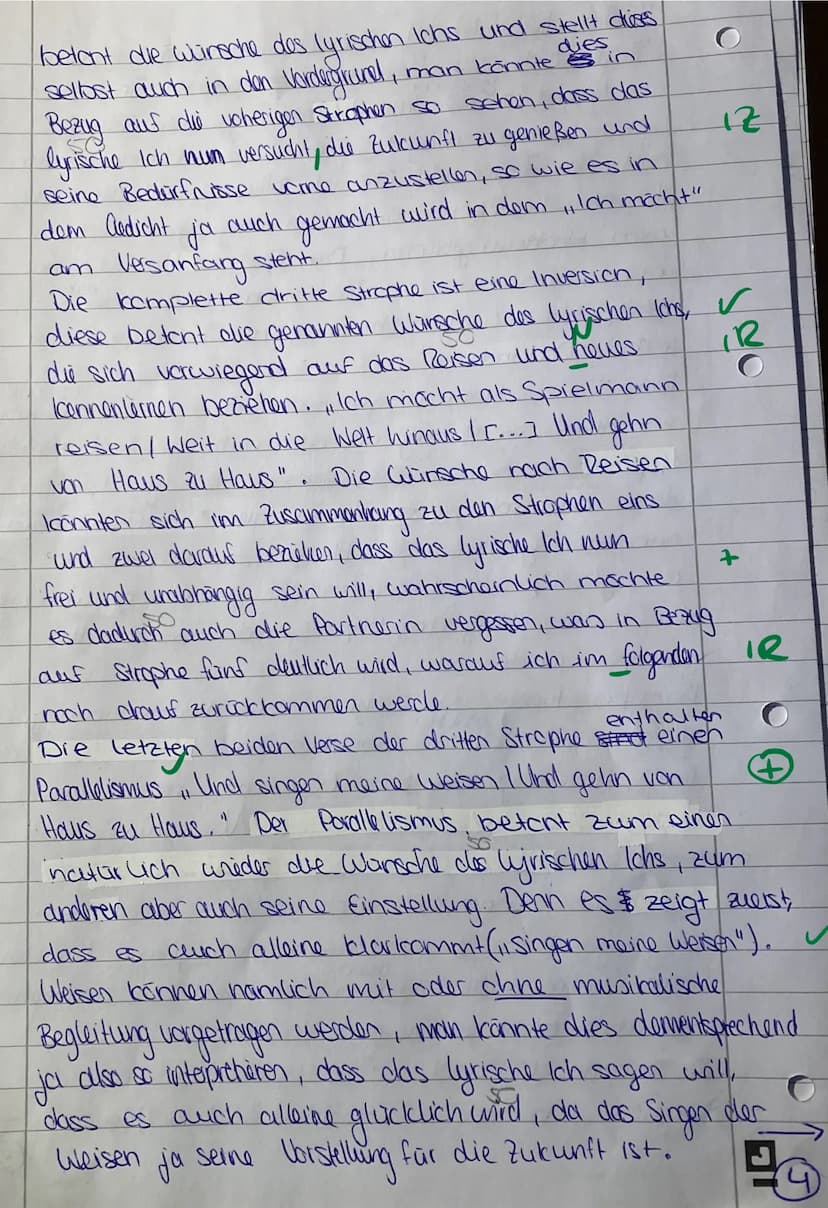 betont die Wünsche des lyrischen Ichs und stellt dieses
selbst auch in den Vordergrund, man könnte dies in
Bezug auf die vorherigen Strophen so sehen, dass das
lyrische Ich nun versucht, die Zukunft zu genießen und
1Z
seine Bedürfnisse vorne anzustellen, so wie es in
dem Gedicht ja auch gemacht wird in dem „Ich möcht"
am Vesanfang steht.
Die komplette dritte Strophe ist eine Inversion,
diese betont die genannten Wünsche des lyrischen Ichs,
die sich vorwiegend auf das Reisen und neues
N
1R
kennenlernen beziehen. „Ich möcht als Spielmann
reisen/ Weit in die Welt hinaus/[...] Und gehn
von Haus zu Haus". Die Wünsche nach Reisen
könnten sich im Zusammenhang zu den Strophen eins
und zwei darauf beziehen, dass das lyrische Ich nun
+
frei und unabhängig sein will, wahrscheinlich möchte
es dadurch auch die Partnerin vergessen, was in Bezug
auf Strophe fünf deutlich wird, worauf ich im folgenden
1R
noch drauf zurückkommen werde.
Die letzten beiden Verse der dritten Strophe enthalten einen
Parallelismus „Und singen meine Weisen/Und gehn von
+
Haus zu Haus." Der Parallelismus betont zum einen
natürlich wieder die Wünsche des lyrischen Ichs, zum
anderen aber auch seine Einstellung. Denn es zeigt zuerst,
dass es auch alleine klarkommt(„singen meine Weisen").
Weisen können nämlich mit oder ohne musikalische
Begleitung vorgetragen werden, man könnte dies dementsprechend
ja also so intepretieren, dass das lyrische Ich sagen will,
dass es auch alleine glücklich wird, da das Singen der
Weisen ja seine Vorstellung für die Zukunft ist.
4